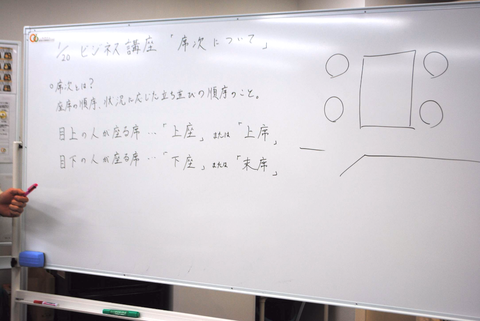 1/20 ビジネス講座「席次について」
○席次とは?
座席の順序、状況に応じた立ち並びの順序のこと。
目上の人が座る席…「上座」または「上席」
目下の人が座る席…「下座」または「末席」